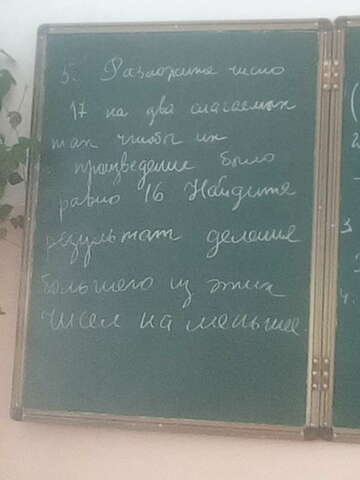 5. Разложите число
17 на два слагаемых
так чтобы их
произведение было
равно 16 Найдите
результат деления
большего из этих
чисел на меньшее.
3
4.